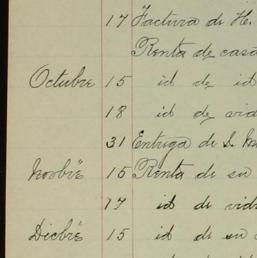 17 Factura de H.
Renta de casa
Octubre 15 id de id
18 id de vid
31 Entrega de S.
Novbre 15 Renta de su
17 id de vidr
Dicbre 15 id de su
id de